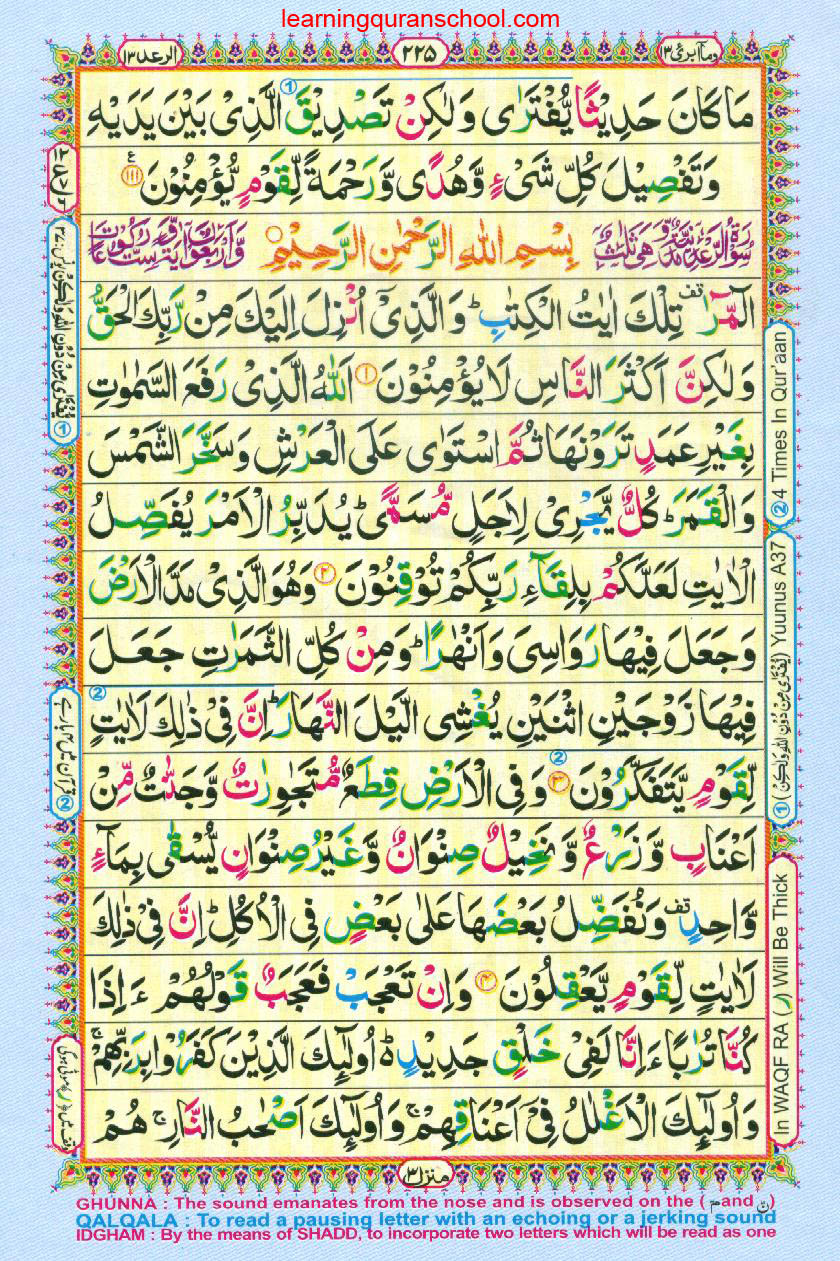 learningquranschool.com
الرعد ١٣
٢٢٥
وما ابرئ ١٣
مَا كَانَ حَدِیْثًا یُّفْتَرٰی وَلٰكِنْ تَصْدِیْقَ الَّذِیْ بَیْنَ یَدَیْهِ
وَتَفْصِیْلَ كُلِّ شَیْءٍ وَّهُدًی وَّرَحْمَةً لِّقَوْمٍ یُّؤْمِنُوْنَ ۝١١١
بِسْمِ اللّٰهِ الرَّحْمٰنِ الرَّحِیْمِ
الٓمّٓرٰ تف تِلْكَ اٰیٰتُ الْكِتٰبِ ؕ وَالَّذِیْۤ اُنْزِلَ اِلَیْكَ مِنْ رَّبِّكَ الْحَقُّ
وَلٰكِنَّ اَكْثَرَ النَّاسِ لَا یُؤْمِنُوْنَ ۝١ اَللّٰهُ الَّذِیْ رَفَعَ السَّمٰوٰتِ
بِغَیْرِ عَمَدٍ تَرَوْنَهَا ثُمَّ اسْتَوٰی عَلَی الْعَرْشِ وَسَخَّرَ الشَّمْسَ
وَالْقَمَرَ ؕ كُلٌّ یَّجْرِیْ لِاَجَلٍ مُّسَمًّی ؕ یُدَبِّرُ الْاَمْرَ یُفَصِّلُ
الْاٰیٰتِ لَعَلَّكُمْ بِلِقَآءِ رَبِّكُمْ تُوْقِنُوْنَ ۝٢ وَهُوَ الَّذِیْ مَدَّ الْاَرْضَ
وَجَعَلَ فِیْهَا رَوَاسِیَ وَاَنْهٰرًا ؕ وَمِنْ كُلِّ الثَّمَرٰتِ جَعَلَ
فِیْهَا زَوْجَیْنِ اثْنَیْنِ یُغْشِی الَّیْلَ النَّهَارَ ؕ اِنَّ فِیْ ذٰلِكَ لَاٰیٰتٍ
لِّقَوْمٍ یَّتَفَكَّرُوْنَ ۝٣ وَفِی الْاَرْضِ قِطَعٌ مُّتَجٰوِرٰتٌ وَّجَنّٰتٌ مِّنْ
اَعْنَابٍ وَّزَرْعٌ وَّنَخِیْلٌ صِنْوَانٌ وَّغَیْرُ صِنْوَانٍ یُّسْقٰی بِمَآءٍ
وَّاحِدٍ تف وَنُفَضِّلُ بَعْضَهَا عَلٰی بَعْضٍ فِی الْاُكُلِ ؕ اِنَّ فِیْ ذٰلِكَ
لَاٰیٰتٍ لِّقَوْمٍ یَّعْقِلُوْنَ ۝٤ وَاِنْ تَعْجَبْ فَعَجَبٌ قَوْلُهُمْ ءَاِذَا
كُنَّا تُرٰبًا ءَاِنَّا لَفِیْ خَلْقٍ جَدِیْدٍ ؕ اُولٰٓئِكَ الَّذِیْنَ كَفَرُوْا بِرَبِّهِمْ ۚ
وَاُولٰٓئِكَ الْاَغْلٰلُ فِیْۤ اَعْنَاقِهِمْ ۚ وَاُولٰٓئِكَ اَصْحٰبُ النَّارِ ۚ هُمْ
② 4 Times In Qur'aan
① Yuunus A37
In WAQF RA (ر) Will Be Thick
منزل ٣
GHUNNA : The sound emanates from the nose and is observed on the (مّ and نّ)
QALQALA : To read a pausing letter with an echoing or a jerking sound
IDGHAM : By the means of SHADD, to incorporate two letters which will be read as one